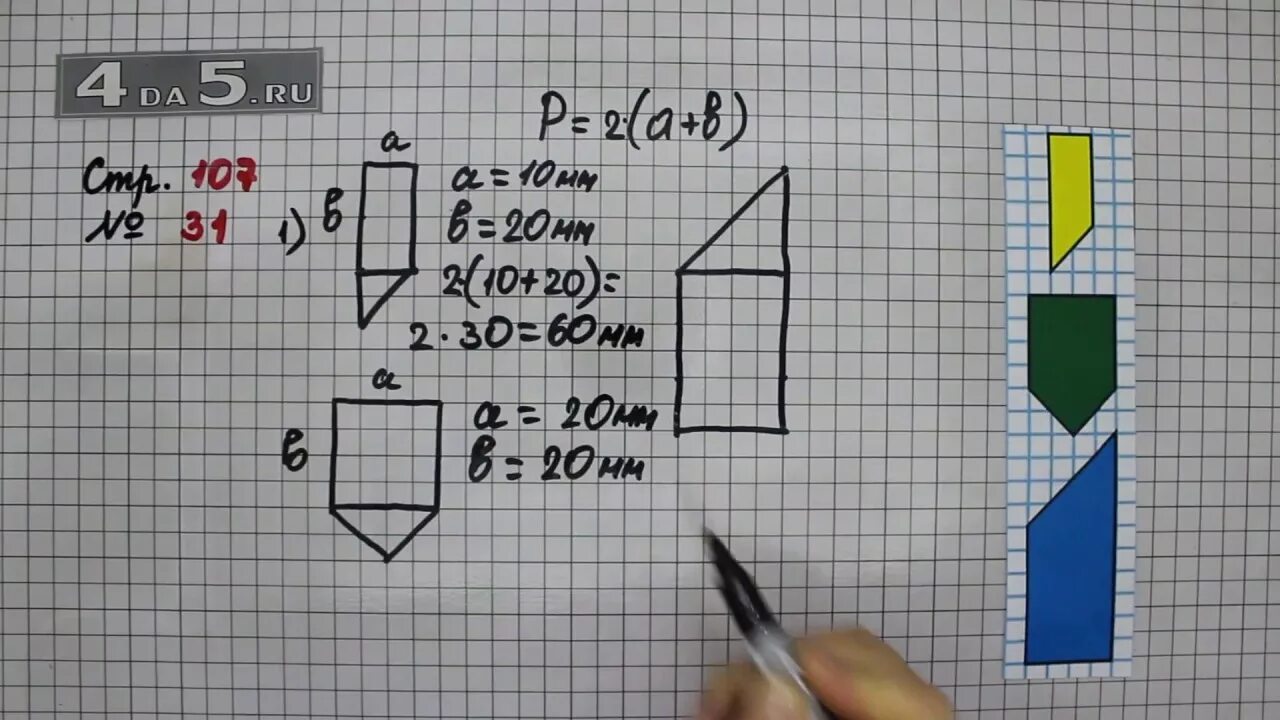 4DA5.RU
Стр. 107
№ 31
1)
a
в
P = 2·(a+в)
a = 10 мм
в = 20 мм
2·(10+20)=
2 · 30 = 60 мм
a
в
a = 20 мм
в = 20 мм